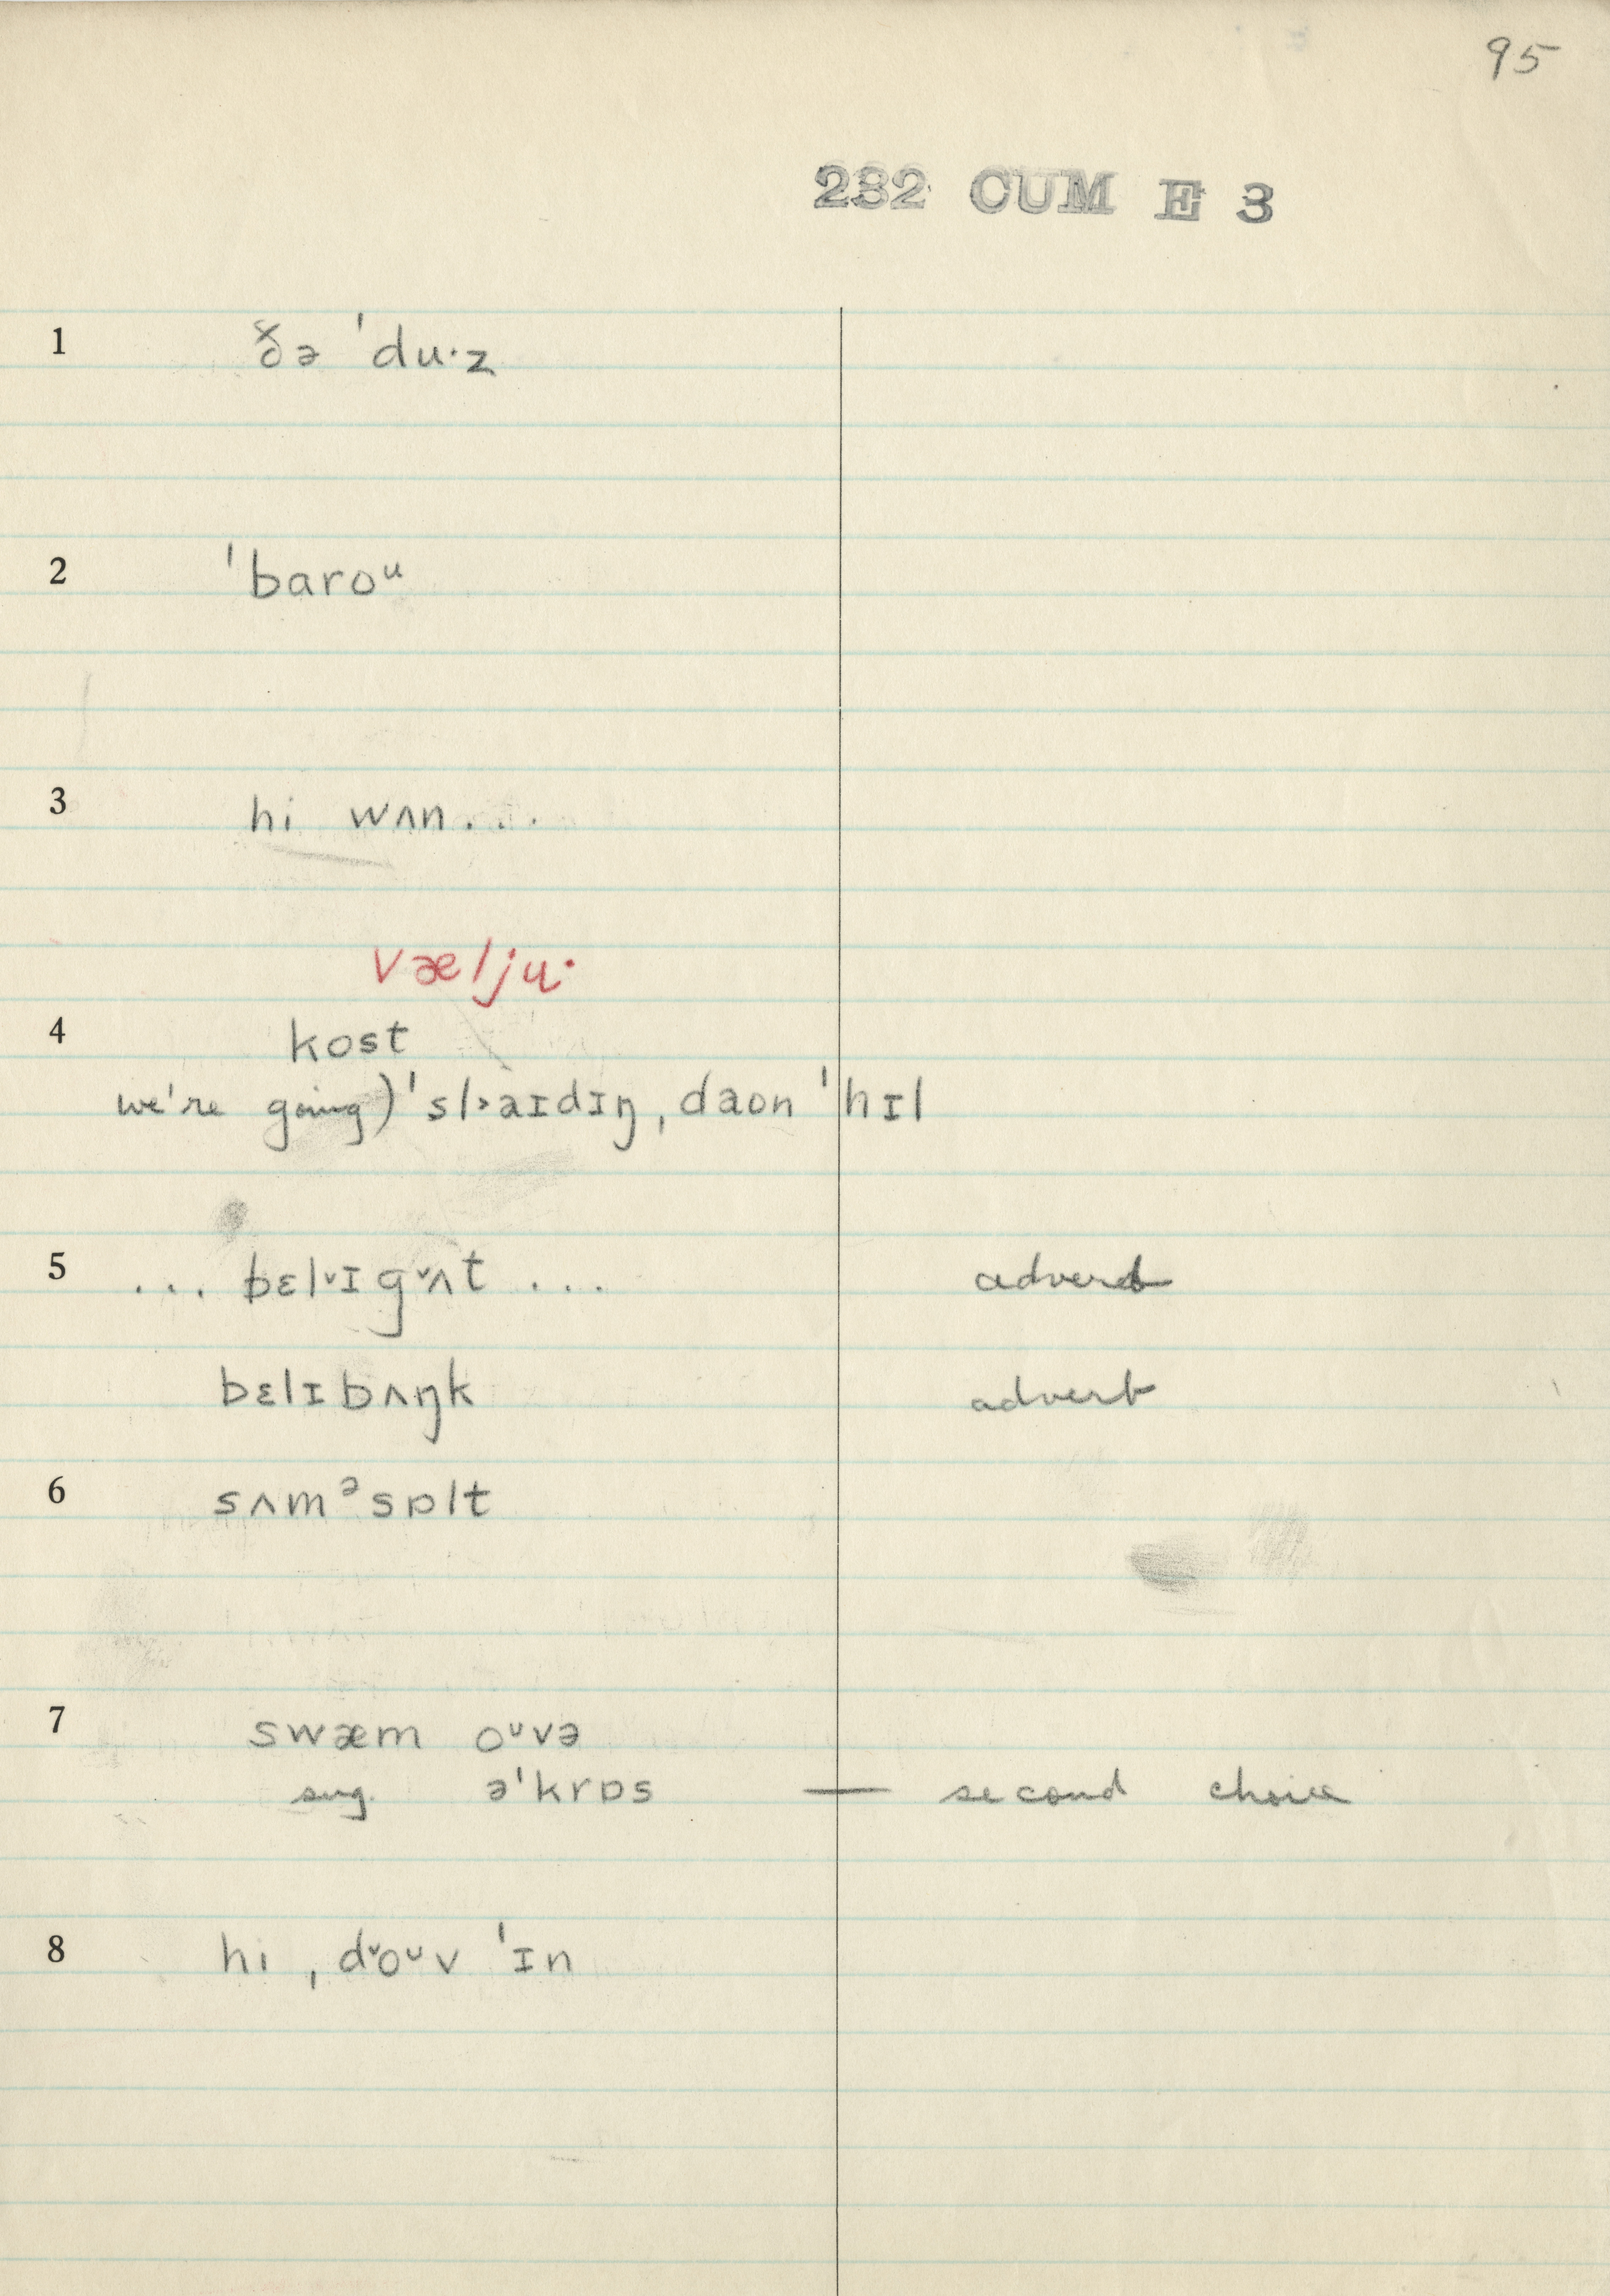 95
232 CUM E 3
1 ðə ˈdu·z
2 ˈbaroᵘ
3 hi wʌn...
væljuˑ
4 kost
we're going) ˈsl˃aɪdɪŋ ˌdaon ˈhɪl
5 ... bɛl˅ɪg˅ʌt ... advert
bɛlɪbʌŋk advert
6 sʌmᵊsɒlt
7 swæm oᵘvə
sug. əˈkrɒs — second choice
8 hi ˌd˅oᵘv ˈɪn